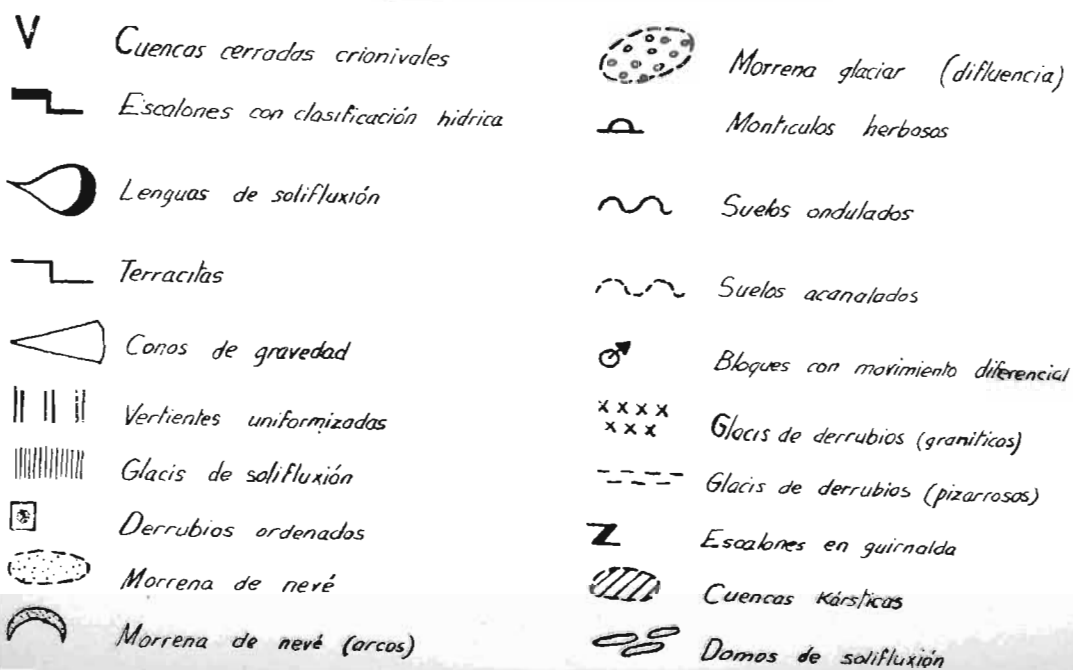 Cuencas cerradas crionivales
Escalones con clasificación hidrica
Lenguas de solifluxión
Terracitas
Conos de gravedad
Vertientes uniformizadas
Glacis de solifluxión
Derrubios ordenados
Morrena de nevé
Morrena de nevé (arcos)
Morrena glaciar (difluencia)
Monticulos herbosos
Suelos ondulados
Suelos acanalados
Bloques con movimiento diferencial
Glacis de derrubios (graniticos)
Glacis de derrubios (pizarrosos)
Escalones en guirnalda
Cuencas Kársticas
Domos de solifluxión